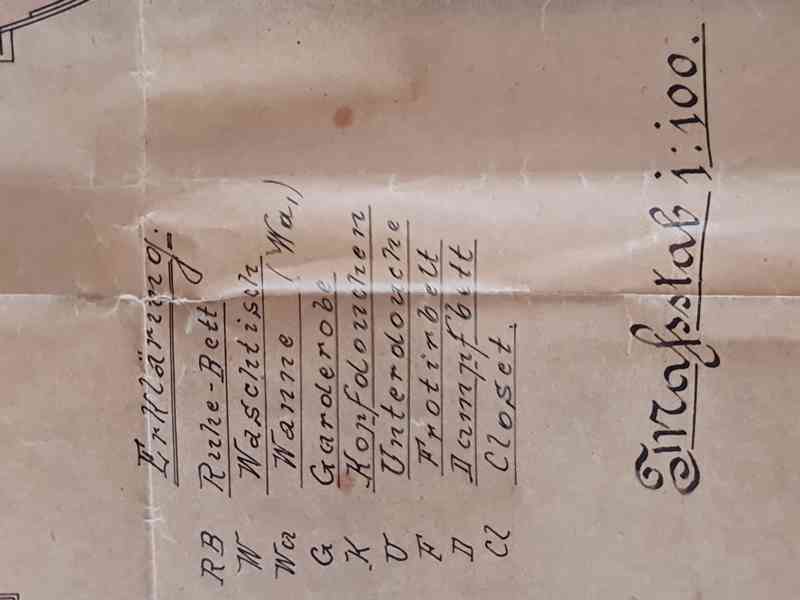 Erklärung.
RB Ruhe-Bett
W Waschtisch
Wa Wanne (Wa,)
G Garderobe
K Kopfdouchen
U Unterdouche
F Frotirbett
D Dampfbett
Cl Closet.
Maſsstab 1:100.